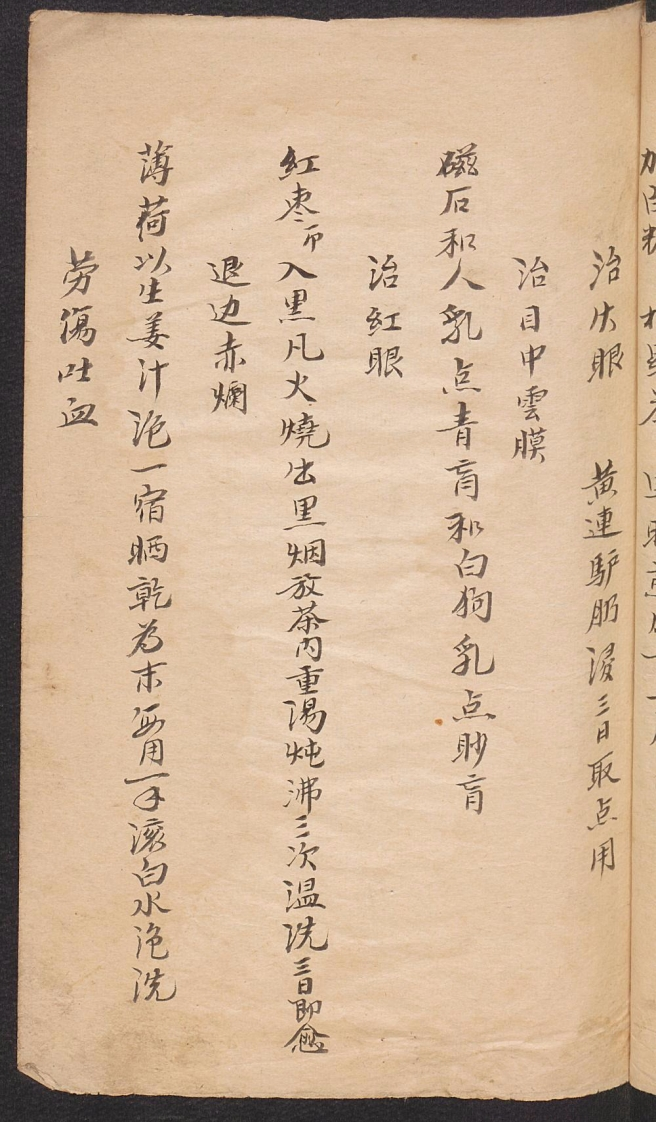 治火眼　黄連驴肋浸三日取点用
治目中雲膜
磁石和人乳点青盲和白狗乳点眇盲
治紅眼
紅枣㕥入黒凡火燒出黒烟放茶内重湯炖沸三次温洗三日即愈
退边赤爛
薄荷以生姜汁泡一宿晒乾為末每用一滚白水泡洗
劳傷吐血